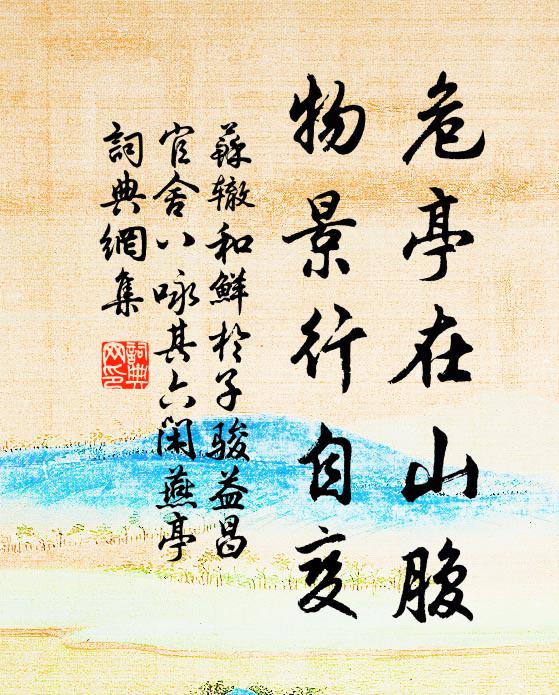 危亭在山腹
物景行自变
蘇辙和鮮於子骏益昌
官舍八咏其六閑燕亭
詞典網集
詞典
网印